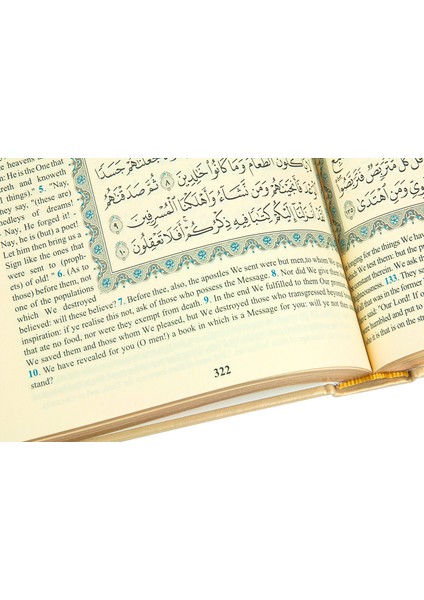 heavens
He is the One that
reth and knoweth
ings)." 5. "Nay,
they say, "(these are)
medleys of dreams!
Nay, He forged it !
Nay, he is (but) a poet!
Let him then bring us a
Sign like the ones that
were sent to (proph-
ets) of old!" 6. (As to
those) before them, not
one of the populations
which We destroyed
believed: will these believe? 7. Before thee, also, the apostles We sent were but men,to whom We
inspiration: if ye realise this not, ask of those who possess the Message. 8. Nor did We give them
that ate no food, nor were they exempt from death. 9. In the end We fulfilled to them Our promise
We saved them and those whom We pleased, but We destroyed those who transgressed beyond
10. We have revealed for you (O men!) a book in which is a Message for you: will ye not
stand?
322
الطَّعَامَ وَمَا كَانُوا خَالِدِينَ ﴿٨﴾ ثُمَّ صَدَقْنَاهُمُ
فَأَنْجَيْنَاهُمْ وَمَنْ نَشَاءُ وَأَهْلَكْنَا الْمُسْرِفِينَ ﴿٩﴾
أَنْزَلْنَا إِلَيْكُمْ كِتَابًا فِيهِ ذِكْرُكُمْ أَفَلَا تَعْقِلُونَ ﴿١٠﴾
كُلٌّ مُتَرَبِّصٌ فَتَرَبَّصُوا
وَمَنِ اهْتَدَى ﴿١٣٥﴾
for the things We have
but the
therein. 133. They
said: "Our Lord! If
humbled and put to
it is that is on the